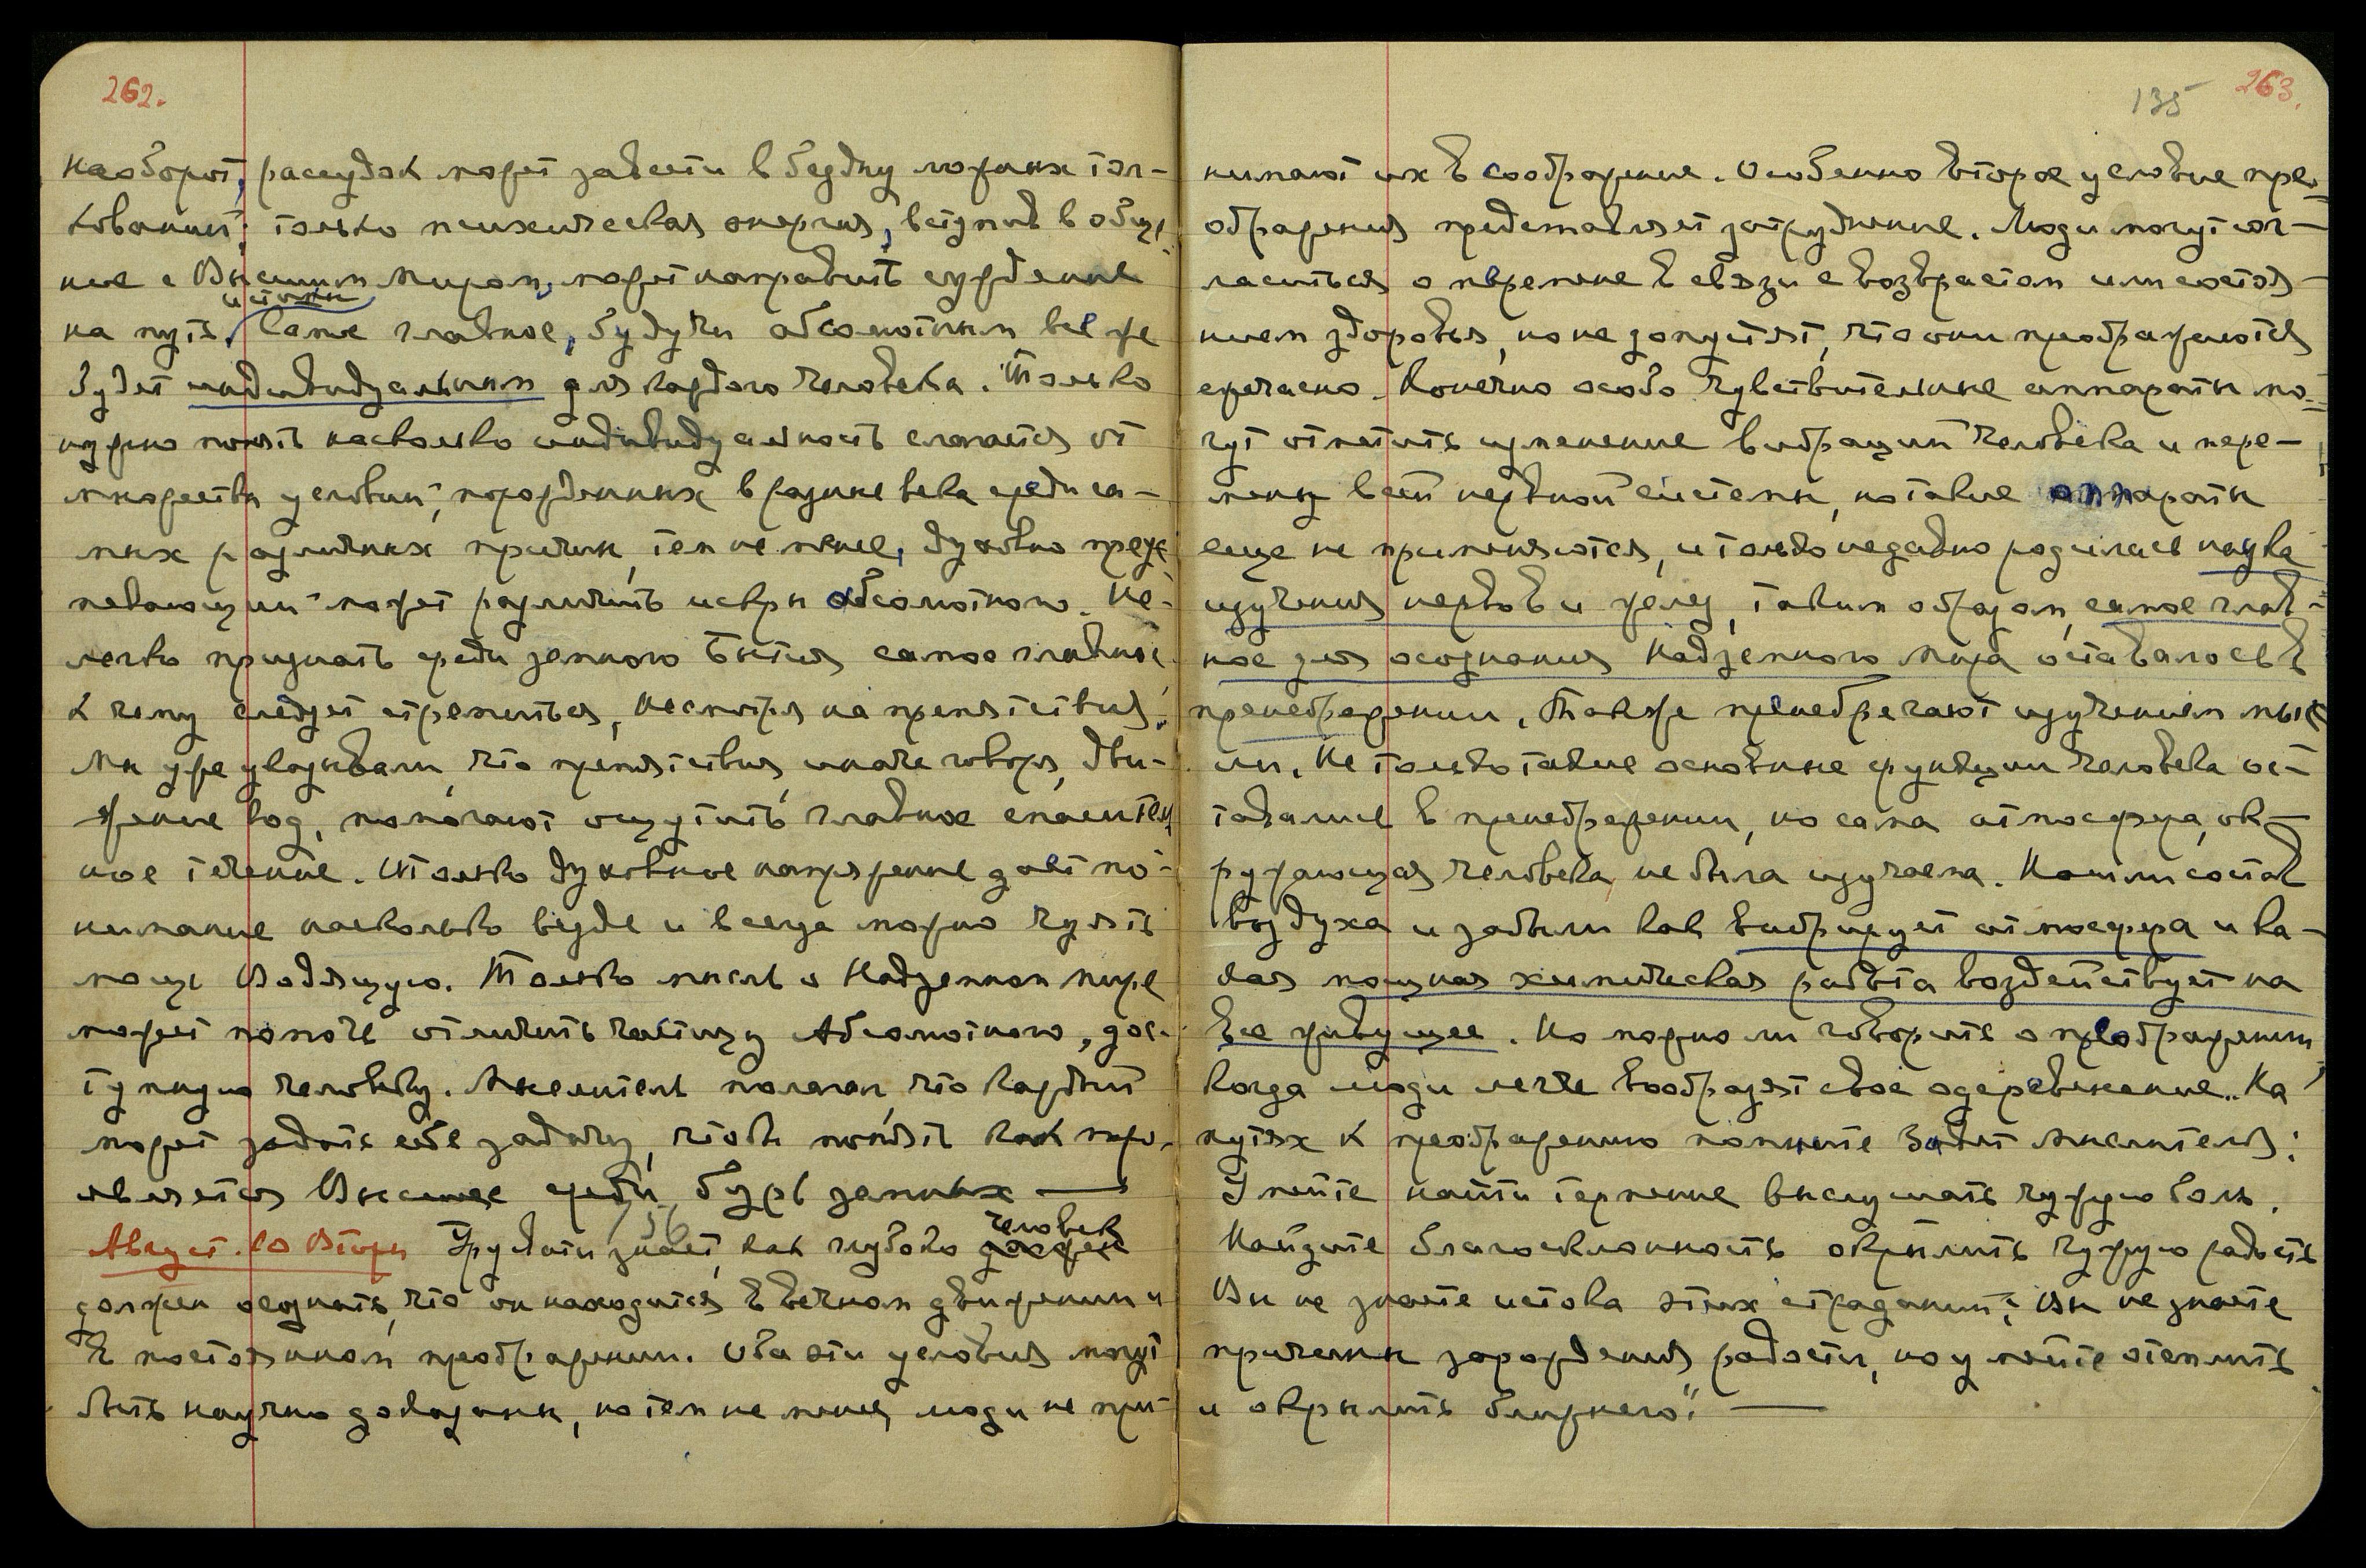 262.
Наоборот, рассудок может завести в бездну ложных тол-
кований; только психическая энергия, вступив в обще-
ние с Высшим Миром, может направить суждение
истины
на путь. Самое главное, будучи абсолютным все же
будет индивидуальным для каждого человека. Только
нужно понять насколько индивидуальность слагается от
множества условий, порожденных в разные века среди са-
мых различных причин, тем не менее, духовно преус-
певающий может различить искры Абсолютного. Не-
легко признать среди земного Бытия самое главное
к чему следует стремиться, несмотря на препятствия.
Мы уже указывали, что препятствия, иначе говоря, дви-
жение вод, помогают ощутить главное спаситель-
ное течение. Только духовное напряжение дает по-
нимание насколько везде и всегда можно чуять
мощь Водящую. Только мысль о Надземном мире
может помочь отличить частицу Абсолютного, дос-
тупную человеку. Мыслитель полагал, что каждый
может задать себе задачу, чтобы понять как про-
является Высшее среди бурь земных —
156
Август. 10 Вторн Урусвати знает, как глубоко должен
человек
должен осознать, что он находится в вечном движении и
в постоянном преображении. Оба эти условия могут
быть научно доказаны, но тем не менее люди не при-
135
263.
нимают их в соображение. Особенно второе условие пре-
ображения представляет затруднение. Люди могут сог-
ласиться о перемене в связи с возврастом или состоя-
нием здоровья, но не допустят, что они преображаются
ежечасно. Конечно особо чувствительные аппараты мо-
гут отметить изменение вибраций человека и пере-
мену всей нервной системы, но такие аппараты
еще не применяются, и только недавно родилась наука
изучения нервов и желез, таким образом, самое глав-
ное для осознания Надземного Мира оставалось в
пренебрежении. Также пренебрегают изучением мыс-
ли. Не только такие основные функции человека ос-
тавались в пренебрежении, но сама атмосфера, ок-
ружающая человека, не была изучаема. Нашли состав
воздуха и забыли как вибрирует атмосфера и ка-
кая мощная химическая работа воздействует на
все живущее. Но можно ли говорить о преображении
когда люди легче вообразят свое одеревенение.. На
путях к преображению помните Завет Мыслителя:
Умейте найти терпение выслушать чужую боль.
Найдите благосклонность окрылить чужую радость
Вы не знаете истока этих страданий; Вы не знаете
причины зарождения радости, но умейте отеплить
и окрылить ближнего." —